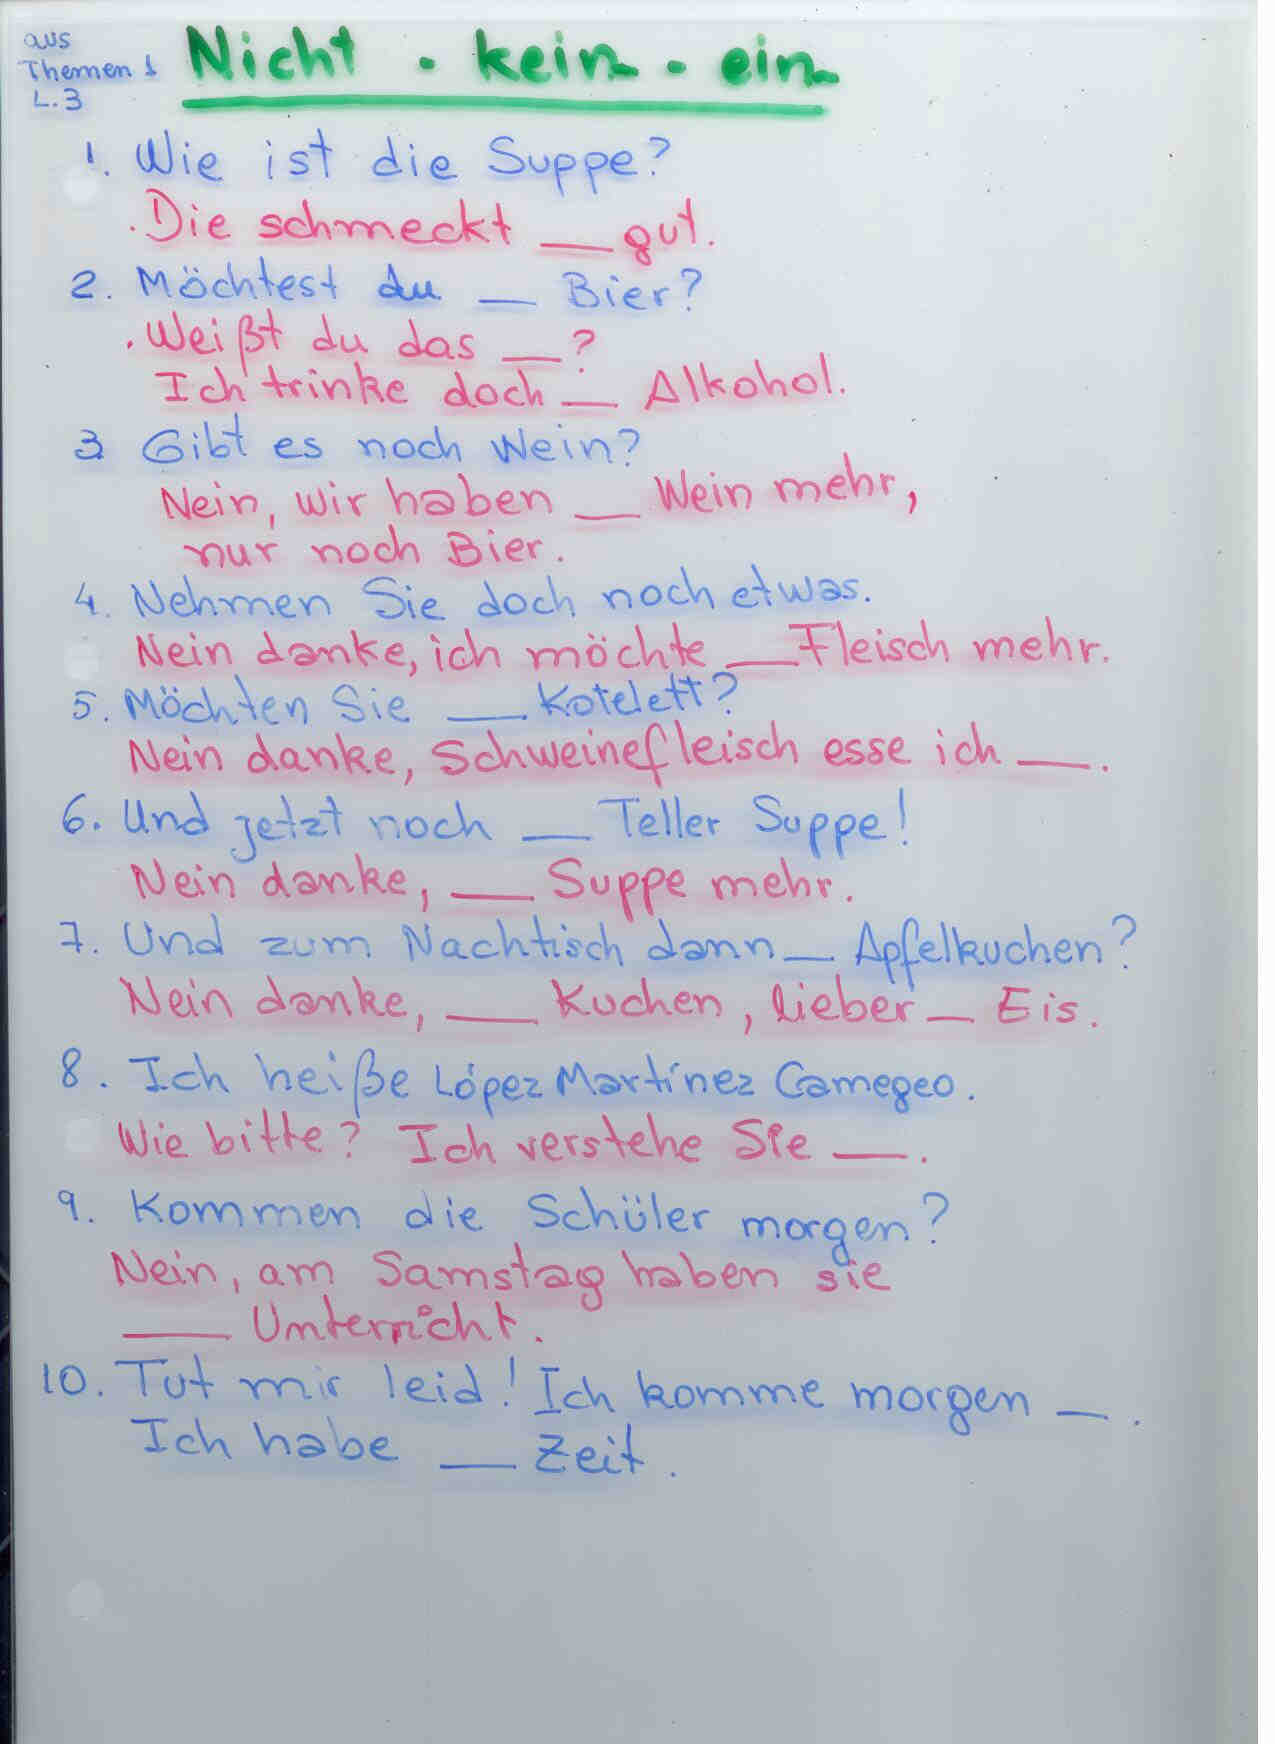 aus
Themen 1
L.3
Nicht · kein- · ein-
1. Wie ist die Suppe?
. Die schmeckt __ gut.
2. Möchtest du __ Bier?
. Weißt du das __?
Ich trinke doch __ Alkohol.
3 Gibt es noch Wein?
Nein, wir haben __ Wein mehr,
nur noch Bier.
4. Nehmen Sie doch noch etwas.
Nein danke, ich möchte __ Fleisch mehr.
5. Möchten Sie __ Kotelett?
Nein danke, Schweinefleisch esse ich __.
6. Und jetzt noch __ Teller Suppe!
Nein danke, __ Suppe mehr.
7. Und zum Nachtisch dann __ Apfelkuchen?
Nein danke, __ Kuchen, lieber __ Eis.
8. Ich heiße López Martínez Camegeo.
Wie bitte? Ich verstehe Sie __.
9. Kommen die Schüler morgen?
Nein, am Samstag haben sie
__ Unterricht.
10. Tut mir leid! Ich komme morgen __.
Ich habe __ Zeit.